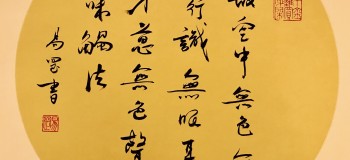 故空中無色
行識無眼耳
身意無色聲
味觸法
書